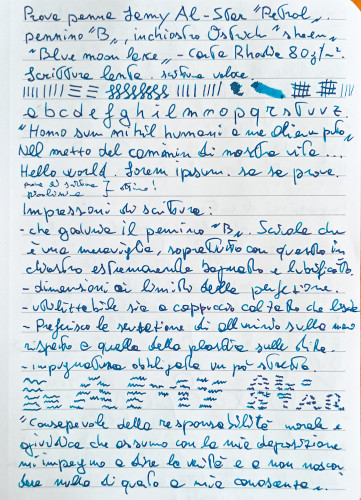 Prova penna Lamy Al-Star "Petrol".
pennino "B", inchiostro Ostrich "sheen"
"Blue moon lake", - Carta Rhodia 80g/m².
Scrittura lenta. scrittura veloce.
a b c d e f g h i l m n o p q r s t u v z
"Homo sum nihil humani a me alienum puto"
Nel mezzo del cammin di nostra vita...
Hello world. Lorem ipsum. sa sa prova.
prove di scrittura
Impressioni di scrittura:
- che goduria il pennino "B". Scivola che
è una meraviglia, soprattutto con questo in
chiostro estremamente bagnato e lubrificato
- dimensioni al limite della perfezione.
- utilizzabile sia a cappuccio calzato che
- Preferisco la sensazione di alluminio sulla mano
rispetto a quella della plastica sulle dita.
- impugnatura obbligata un pò stretta.
"Consapevole della responsabilità morale e
giuridica che assumo con la mia deposizione
mi impegno a dire la verità e a non nascon
dere nulla di quanto a mia conoscenza...